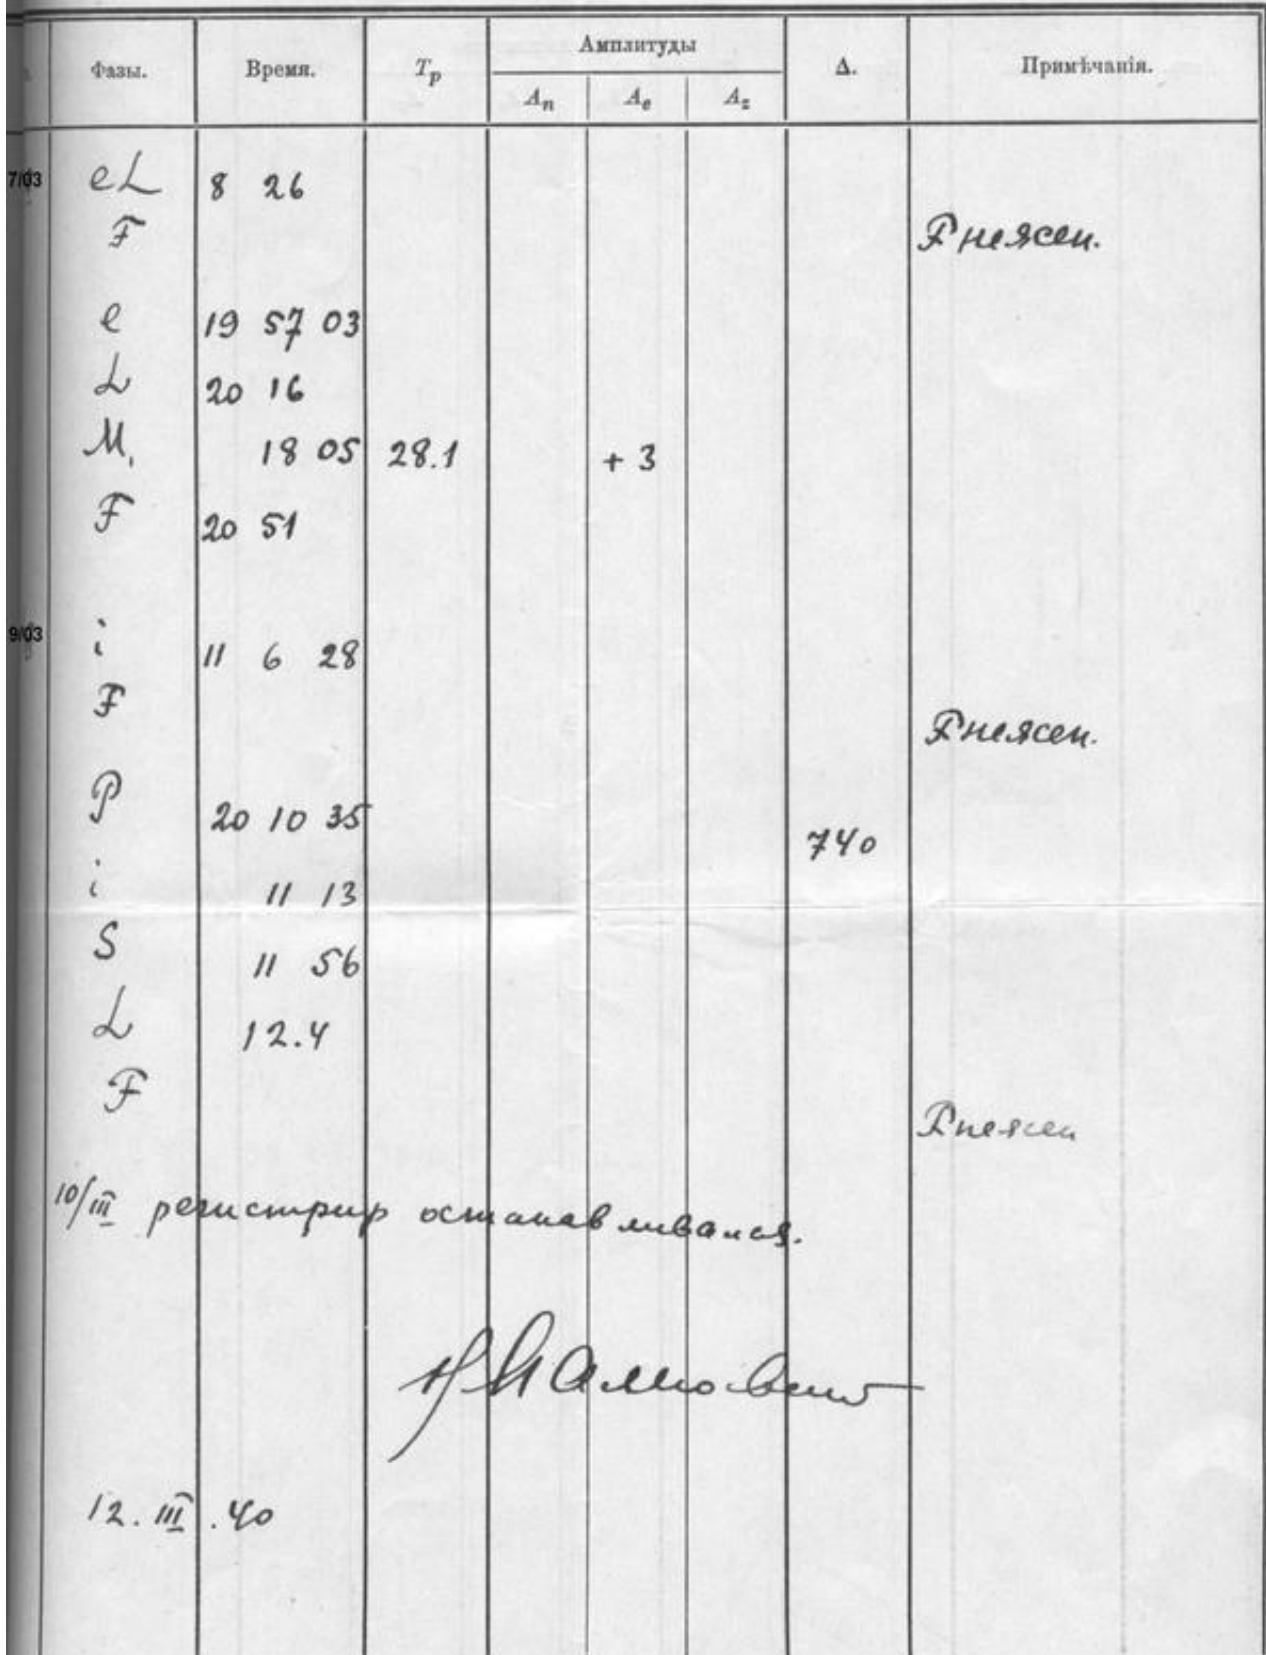 Фазы. Время. Tp Амплитуды Δ. Примѣчанія.
An Ae Az
7/03 eL 8 26
F F неясен.
e 19 57 03
L 20 16
M1 18 05 28.1 + 3
F 20 51
9/03 i 11 6 28
F F неясен.
P 20 10 35 740
i 11 13
S 11 56
L 12.4
F F неясен
10/III регистрир останавливался.
12.III.40